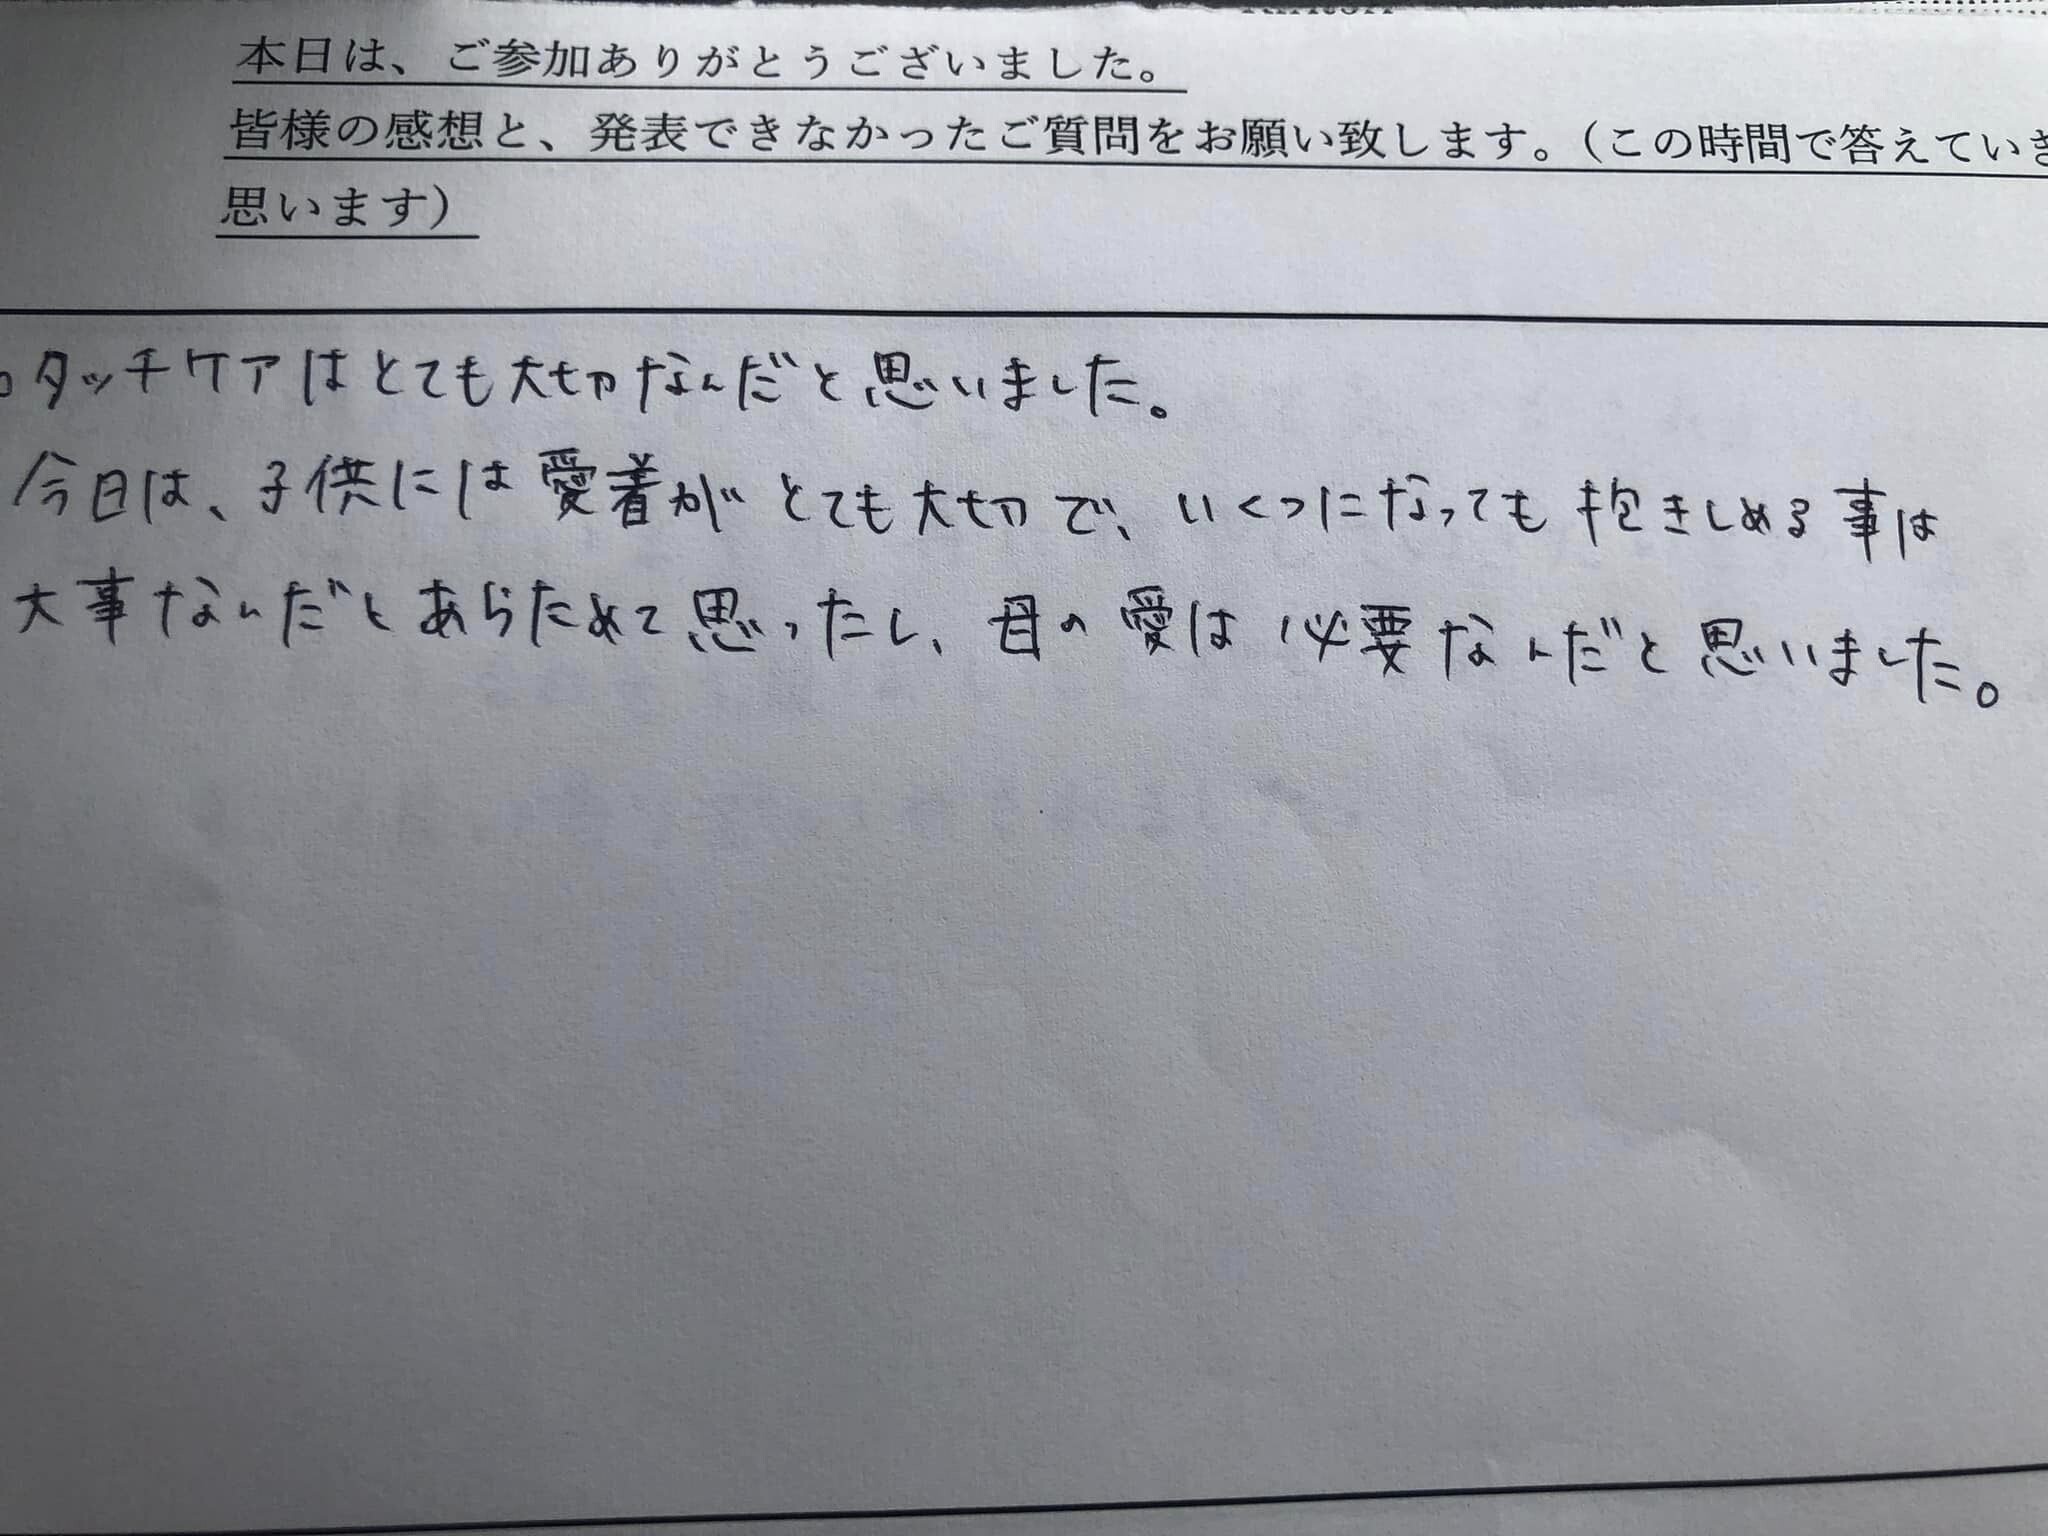 本日は、ご参加ありがとうございました。
皆様の感想と、発表できなかったご質問をお願い致します。（この時間で答えていき
思います）
○タッチケアはとても大切なんだと思いました。
今日は、子供には愛着がとても大切で、いくつになっても抱きしめる事は
大事なんだとあらためて思ったし、母の愛は必要なんだと思いました。